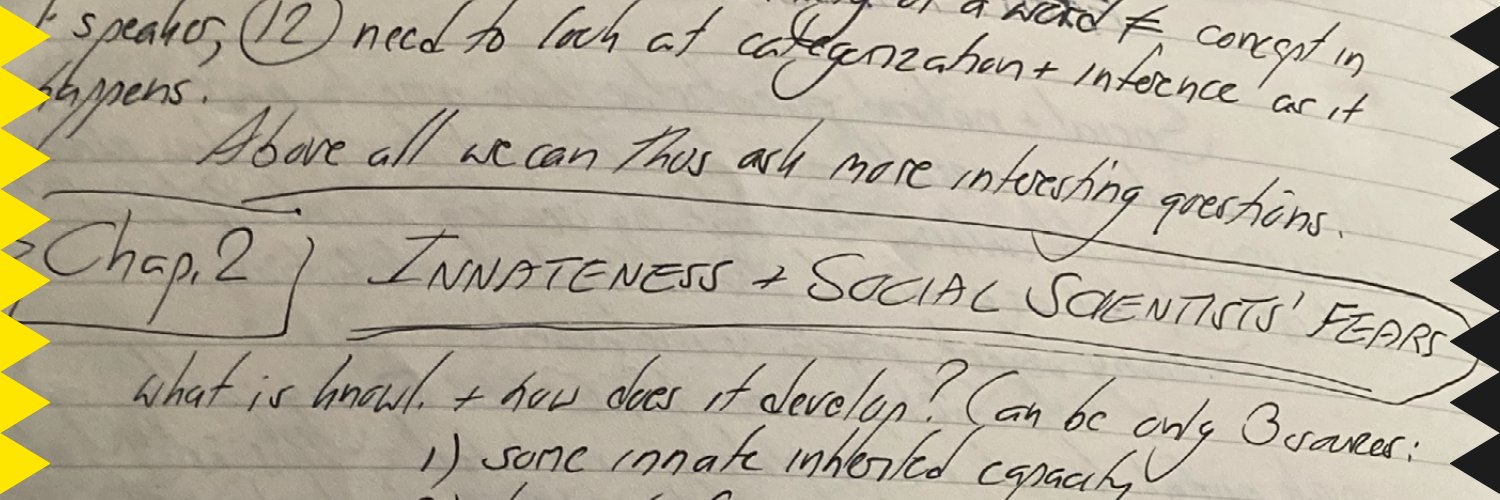 of a word ≠ concept in
speaker, 12 need to look at categorization + inference as it
happens.
Above all we can thus ask more interesting questions.
Chap. 2 INNATENESS + SOCIAL SCIENTISTS' FEARS
What is knowl. + how does it develop? Can be only 3 sources:
1) some innate inherited capacity